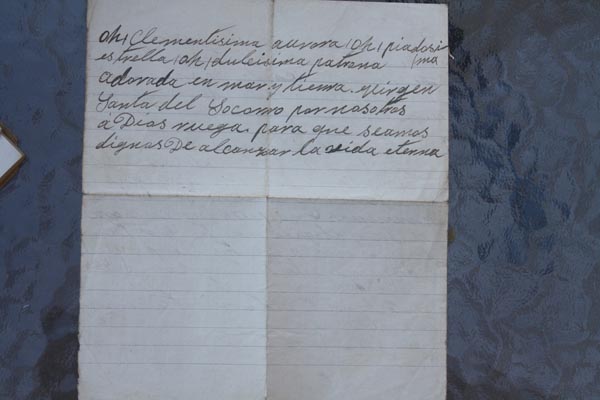 oh, Clementisima aurora, oh, piadosi
ma
estrella, oh, dulcisima patrona
adorada en mar y tierra, virgen
Santa del Socorro por nosotros
á Dios ruega para que seamos
dignos De alcanzar la vida eterna